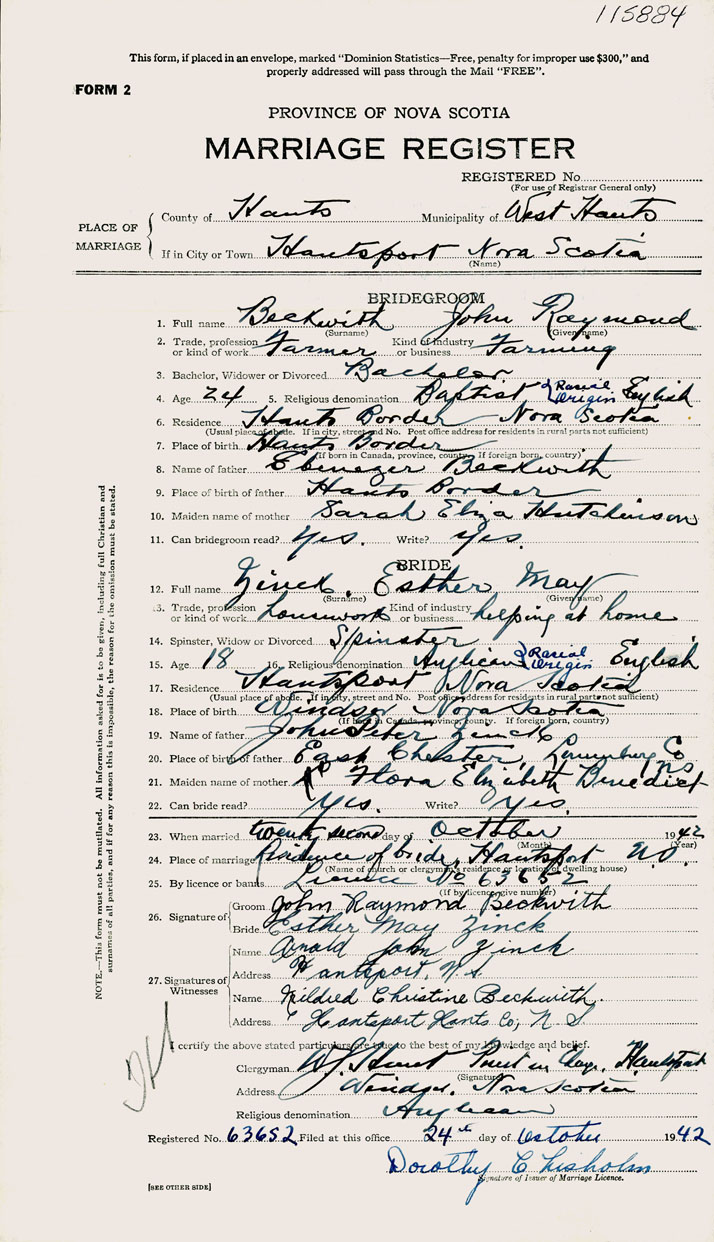 115884
This form, if placed in an envelope, marked "Dominion Statistics—Free, penalty for improper use $300," and
properly addressed will pass through the Mail "FREE".
FORM 2
PROVINCE OF NOVA SCOTIA
MARRIAGE REGISTER
REGISTERED No.
(For use of Registrar General only)
PLACE OF MARRIAGE
County of Hants Municipality of West Hants
If in City or Town Hantsport Nova Scotia
(Name)
BRIDEGROOM
1. Full name Beckwith John Raymond
(Surname) (Given name)
2. Trade, profession or kind of work Farmer Kind of industry or business Farming
3. Bachelor, Widower or Divorced Bachelor
4. Age 24 5. Religious denomination Baptist Racial Origin English
6. Residence Hants Border Nova Scotia
(Usual place of abode. If in city, street and No. Post office address for residents in rural parts not sufficient)
7. Place of birth Hants Border
(If born in Canada, province, county. If foreign born, country)
8. Name of father Ebenezer Beckwith
9. Place of birth of father Hants Border
10. Maiden name of mother Sarah Eliza Hutchinson
11. Can bridegroom read? Yes. Write? Yes.
BRIDE
12. Full name Zinck, Esther May
(Surname) (Given name)
13. Trade, profession or kind of work housework Kind of industry or business helping at home
14. Spinster, Widow or Divorced Spinster
15. Age 18 16. Religious denomination Anglican Racial Origin English
17. Residence Hantsport Nova Scotia
(Usual place of abode. If in city, street and No. Post office address for residents in rural parts not sufficient)
18. Place of birth Windsor Nova Scotia
(If born in Canada, province, county. If foreign born, country)
19. Name of father John Zinck
20. Place of birth of father East Chester, Lunenburg Co N.S.
21. Maiden name of mother Flora Elizabeth Benedict
22. Can bride read? Yes. Write? Yes.
23. When married twenty second day of October 1942
(Month) (Year)
24. Place of marriage Residence of bride, Hantsport N.S.
(Name of church or clergyman's residence or location of dwelling house)
25. By licence or banns Licence No 63652
(If by licence give number)
26. Signature of
Groom John Raymond Beckwith
Bride Esther May Zinck
27. Signatures of Witnesses
Name Arnold John Zinck
Address Hantsport, N.S.
Name Mildred Christine Beckwith.
Address Hantsport Hants Co, N.S
I certify the above stated particulars are true to the best of my knowledge and belief.
Clergyman Priest in Hantsport
(Signature)
Address Windsor, Nova Scotia
Religious denomination Anglican
Registered No. 63652 Filed at this office 24th day of October 1942
Dorothy Chisholm
Signature of Issuer of Marriage Licence.
[SEE OTHER SIDE]
NOTE.—This form must not be mutilated. All information asked for is to be given, including full Christian and
surnames of all parties, and if for any reason this is impossible, the reason for the omission must be stated.